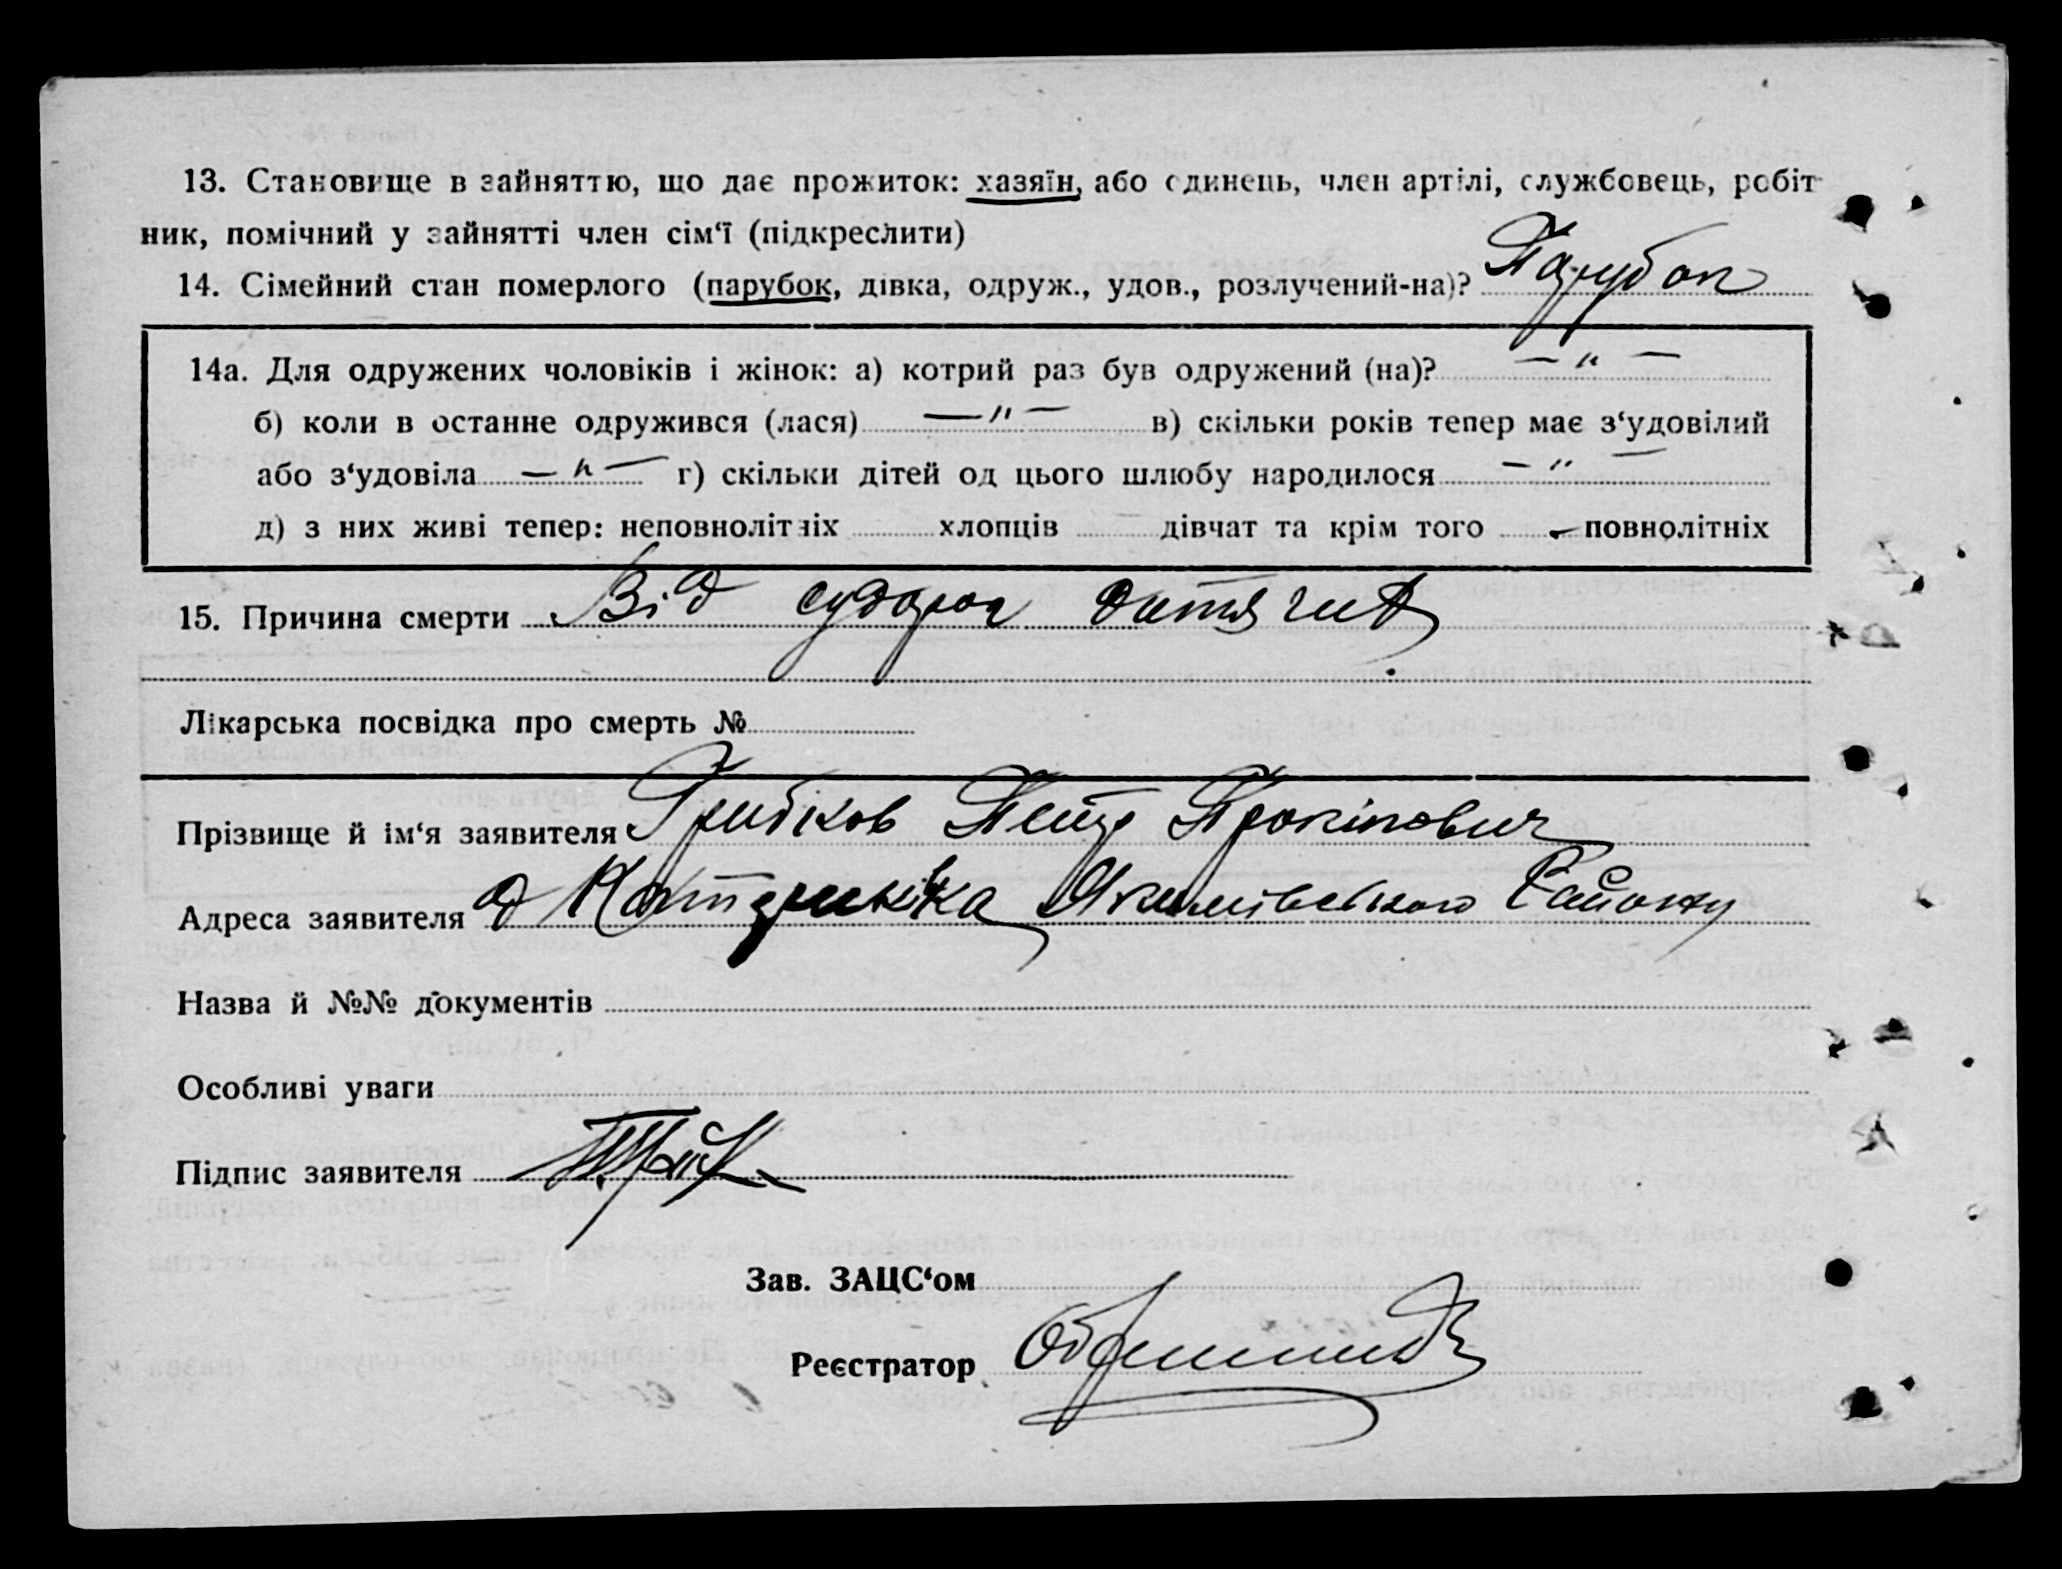 13. Становище в зайняттю, що дає прожиток: хазяїн, або єдинець, член артілі, службовець, робіт
ник, помічний у зайнятті член сім‘ї (підкреслити)
14. Сімейний стан померлого (парубок, дівка, одруж., удов., розлучений-на)? Парубок
14а. Для одружених чоловіків і жінок: а) котрий раз був одружений (на)? — " —
б) коли в останне одружився (лася) — " — в) скільки років тепер має з‘удовілий
або з‘удовіла — " — г) скільки дітей од цього шлюбу народилося — " —
д) з них живі тепер: неповнолітніх хлопців дівчат та крім того повнолітніх
15. Причина смерти Від судорог
Лікарська посвідка про смерть №
Прізвище й ім‘я заявителя Грибков Петр Прокіпович
Адреса заявителя Якимівського Району
Назва й №№ документів
Особливі уваги
Підпис заявителя
Зав. ЗАЦС‘ом
Реєстратор